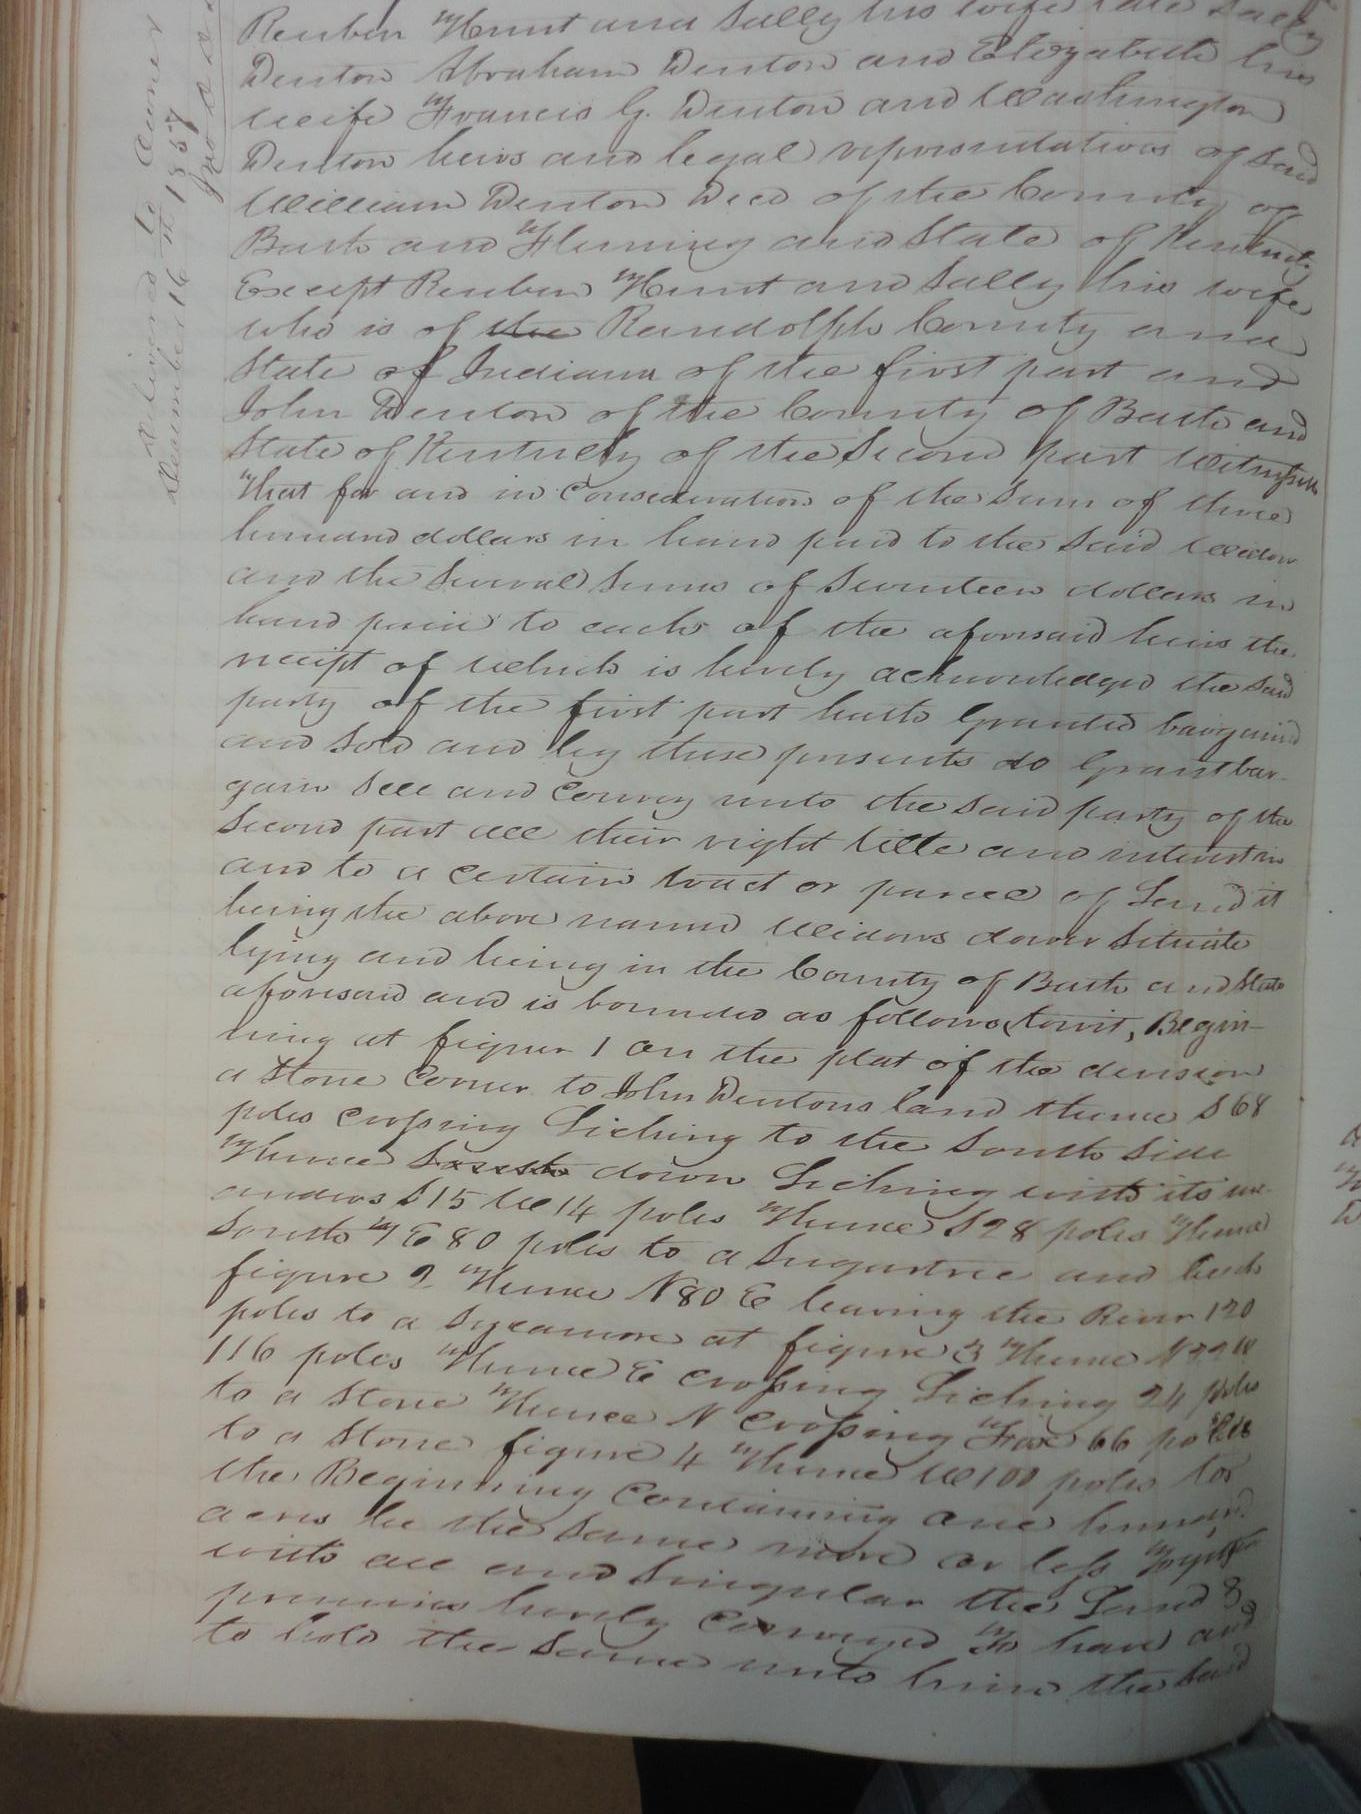 Reuben Hunt and Sally his wife late Sally
Denton Abraham Denton and Elizabeth his
wife Francis G. Denton and Washington
Denton heirs and legal representatives of Said
William Denton Decd of the County of
Bath and Fleming and State of Kentucky
Except Reuben Hunt and Sally his wife
who is of the Randolph County and
State of Indiana of the first part and
John Denton of the County of Bath and
State of Kentucky of the Second part Witnesseth
That for and in Consideration of the Sum of three
hundred dollars in hand paid to the Said Widow
and the Several Sums of Seventeen dollars in
hand paid to each of the aforesaid heirs the
receipt of which is hereby acknowledged the Said
party of the first part hath Granted bargained
and Sold and by these presents do Grant bar-
gain Sell and Convey unto the Said party of the
Second part all their right title and interest in
and to a certain tract or parcel of Land it
being the above named Widows dower Situate
lying and being in the County of Bath and State
aforesaid and is bounded as follows (towit, Begin-
ning at figure 1 on the plat of the division
a Stone Corner to John Dentons land thence S 68
poles crossing Licking to the South Side
Thence South down Licking with its me-
anders S 15 W 14 poles Thence S 28 poles Thence
South 7 E 80 poles to a Sugartree and
figure 2 Thence N 80 E leaving the River 120
poles to a Sycamore at figure 3 Thence N 22 W
116 poles Thence E crossing Licking 24 poles
to a Stone Thence N Crossing 66 poles
to a Stone figure 4 Thence W 100 poles to
the Beginning Containing one hundred
acres be the Same more or less Together
with all and Singular the Land &
premises hereby Conveyed To have and
to hold the Same unto him the Said
Delivered to
December 16th 1857